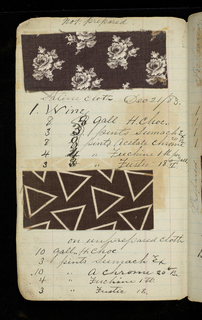 not prepared
cloth Dec 21/83.
1. Wine
8 gall H. Choc.
3 pints Sumach Ex
8 pints Acetate Chrome
4 " Fuchine 1 lb
3 " Fustic 18
on unprepared cloth
10 gall H. Choc
3 pints Sumach Ex
10 " A Chrome 20
4 " Fuchine 1 lb
3 " Fustic 18